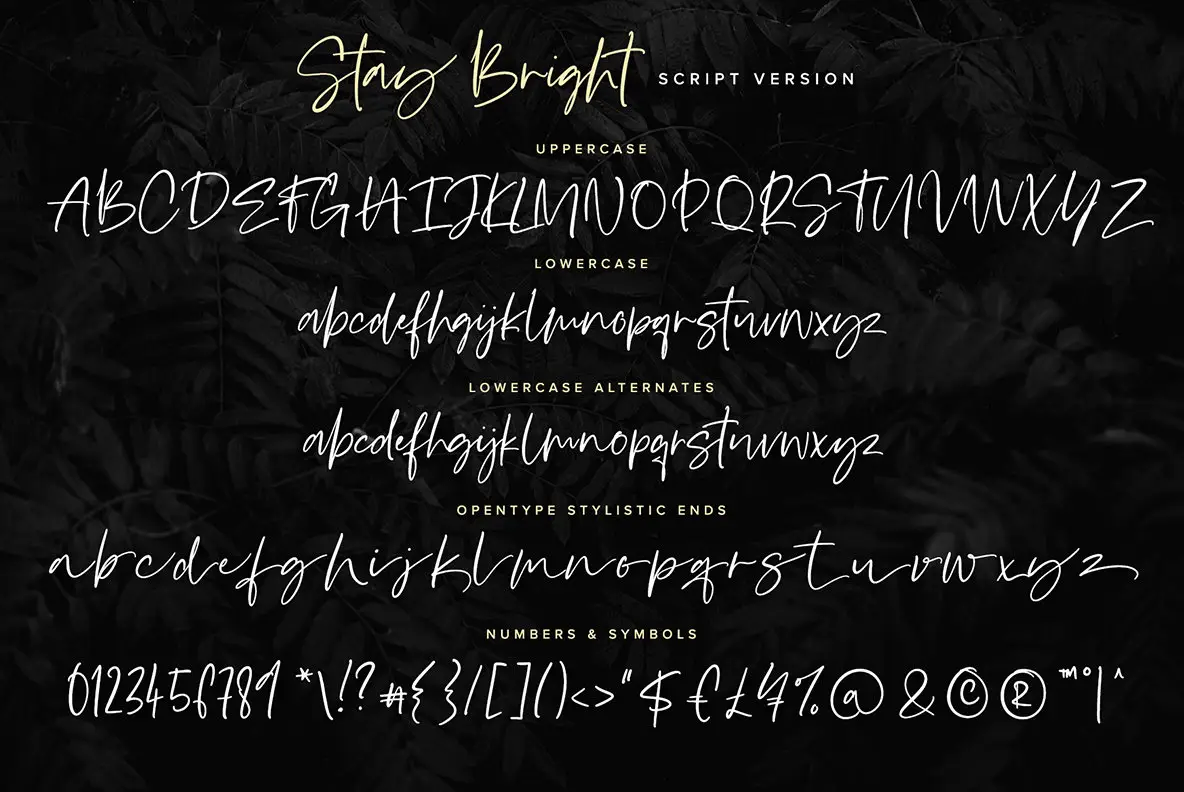 Stay Bright SCRIPT VERSION
UPPERCASE
ABCDEFGHIJKLMNOPQRSTUVWXYZ
LOWERCASE
abcdefhgijklmnopqrstuvwxyz
LOWERCASE ALTERNATES
abcdefhgijklmnopqrstuvwxyz
OPENTYPE STYLISTIC ENDS
abcdefghijklmnopqrstuvwxyz
NUMBERS & SYMBOLS
0123456789 *\!?#{}/[]()<>"$€£¥%@&©®™°|^